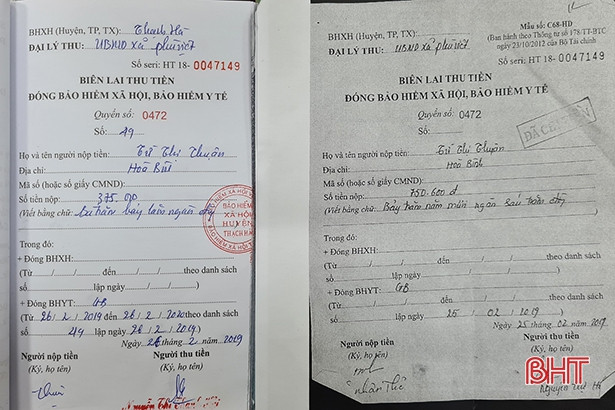 BHXH (Huyện, TP, TX): Thạch Hà
ĐẠI LÝ THU: UBND xã phù việt
Số seri: HT 18- 0047149
BIÊN LAI THU TIỀN
ĐÓNG BẢO HIỂM XÃ HỘI, BẢO HIỂM Y TẾ
Quyển số: 0472
Số: 49
Họ và tên người nộp tiền: Thị Thuận
Địa chỉ: Hoà Bình
Mã số (hoặc số giấy CMND):
Số tiền nộp: 375.
(Viết bằng chữ: bảy ngàn đồng
BẢO HIỂM
XÃ HỘI
HUYỆN
THẠCH HÀ
Trong đó:
+ Đóng BHXH:
(Từ / / đến / / theo danh sách
số lập ngày / / )
+ Đóng BHYT: GB
(Từ 26/2/2019 đến 26/2/2020 theo danh sách
số 49 lập ngày 26/2/2019)
Ngày 26 tháng 2 năm 2019
Người nộp tiền
(Ký, họ tên)
Người thu tiền
(Ký, họ tên)
BHXH (Huyện, TP, TX):
ĐẠI LÝ THU: UBND xã phù việt
Mẫu số: C68-HD
(Ban hành theo Thông tư số 178/TT-BTC
ngày 23/10/2012 của Bộ Tài chính
Số seri: HT 18- 0047149
BIÊN LAI THU TIỀN
ĐÓNG BẢO HIỂM XÃ HỘI, BẢO HIỂM Y TẾ
Quyển số: 0472
Số:
Họ và tên người nộp tiền: Thị Thuận
Địa chỉ: Hoà Bình
Mã số (hoặc số giấy CMND):
Số tiền nộp: 750.600 đ
(Viết bằng chữ: Bảy trăm năm mươi ngàn sáu trăm đồng
Trong đó:
+ Đóng BHXH:
(Từ / / đến / / theo danh sách
số lập ngày / / )
+ Đóng BHYT: GB
(Từ / / đến / / theo danh sách
số lập ngày 25/02/2019)
Ngày 25 tháng 02 năm 2019
Người nộp tiền
(Ký, họ tên)
Người thu tiền
(Ký, họ tên)
BHT